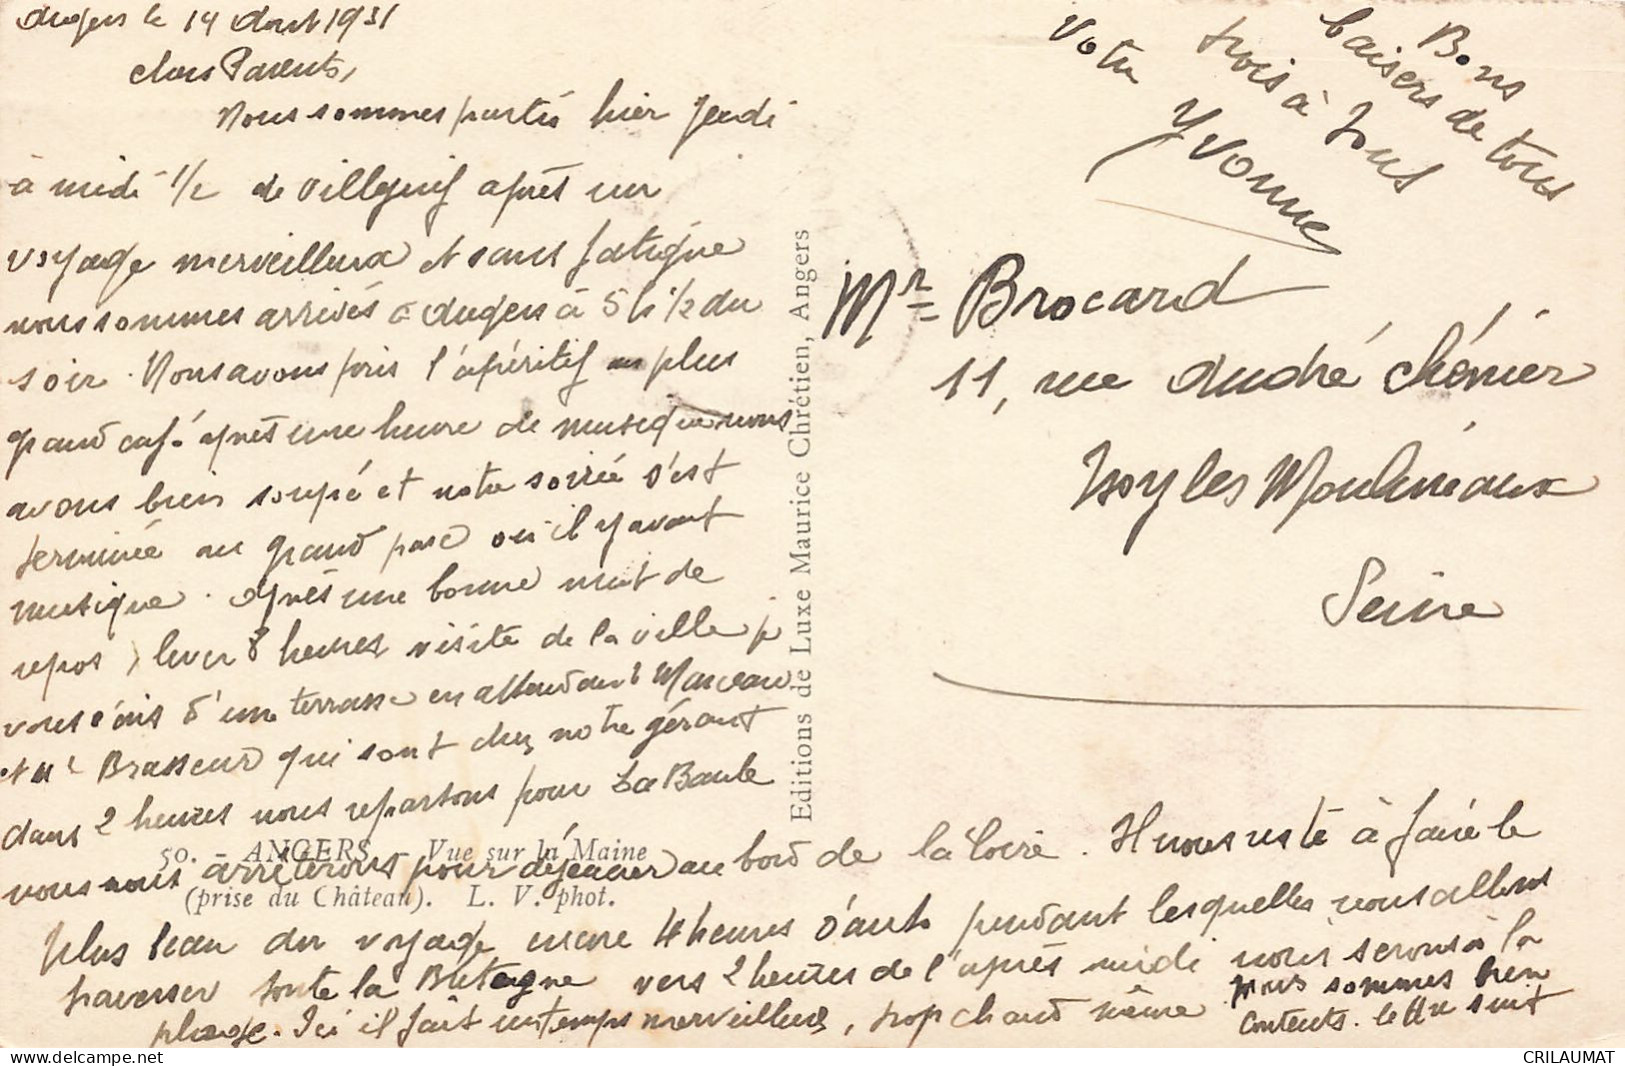 Angers le 14 Aout 1931
chers Parents,
Nous sommes partis hier Jeudi
à midi 1/2 de Villejuif après un
voyage merveilleux et sans fatigue
nous sommes arrivés à Angers à 5 h 1/2 du
soir. Nous avons pris l'apéritif au plus
grand café. après une heure de musique nous
avons bien soupé et notre soirée s'est
terminée au grand parc où il y avait
musique. Après une bonne nuit de
repos, lever 8 heures visite de la ville je
vous écris d'une terrasse en attendant Marceau
et Mr Brasseur qui sont chez notre gérant
dans 2 heures nous repartons pour La Baule
nous nous arrêterons pour déjeuner au bord de la Loire. Il nous reste à faire le
plus beau du voyage encore 4 heures d'auto pendant lesquelles nous allons
traverser toute la Bretagne vers 2 heures de l'après midi nous serons à la
plage. Ici il fait un temps merveilleux, trop chaud même nous sommes bien
contents. lettre suit
Bons
baisers de tous
trois à tous
Votre
Yvonne
Mr Brocard
11, rue André Chénier
Issy les Moulineaux
Seine
Editions de Luxe Maurice Chrétien, Angers
50. - ANGERS - Vue sur la Maine
(prise du Château). L. V. phot.
CRILAUMAT